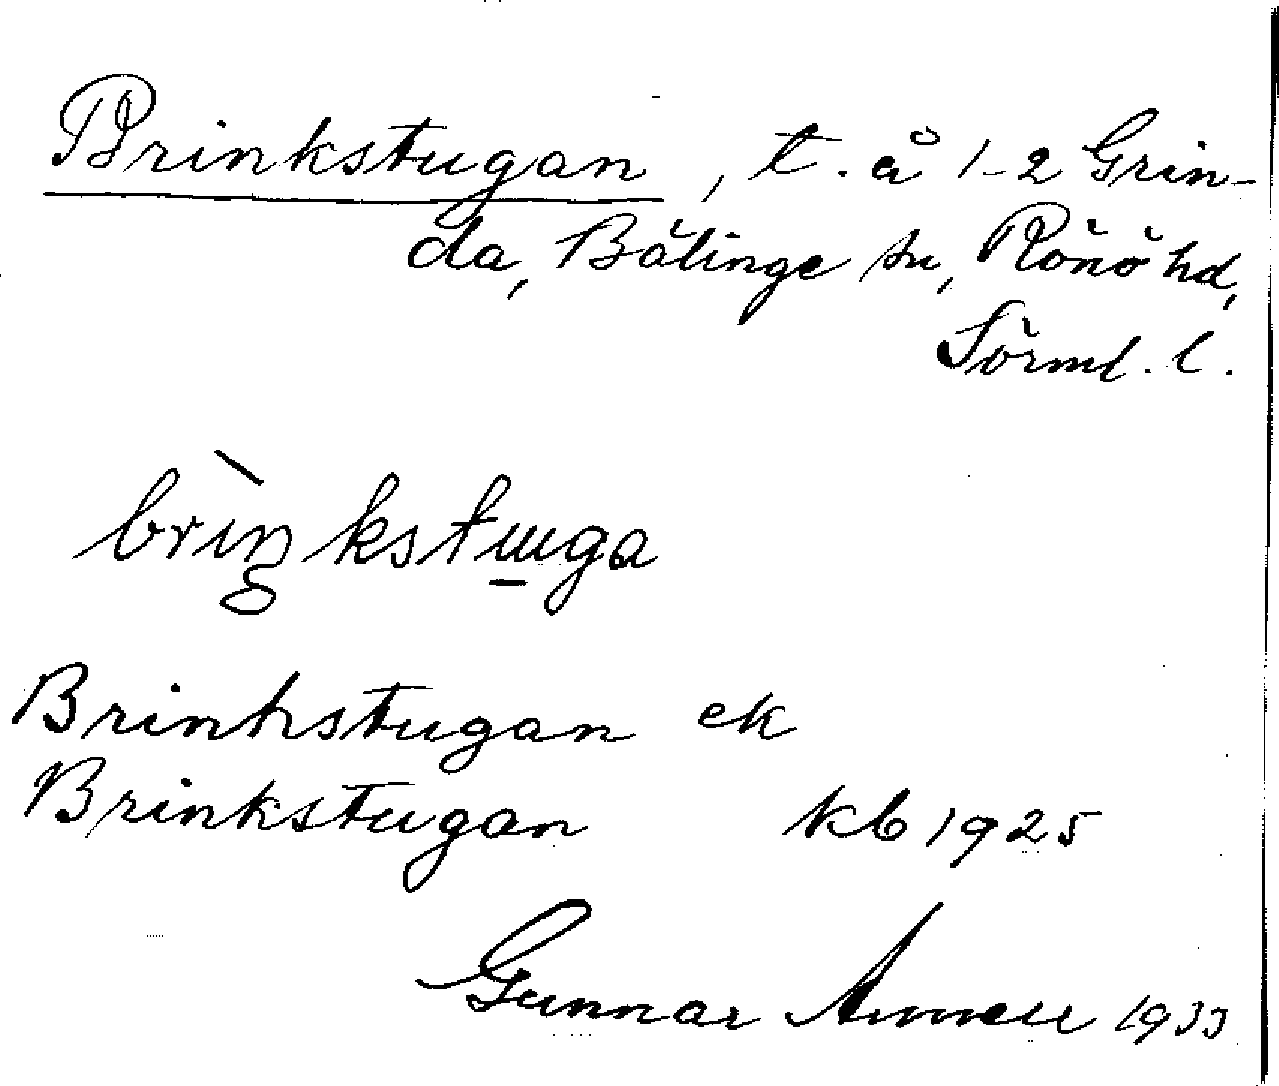 Brinkstugan, t. å 1-2 Grin-
da, Bälinge sn, Rönö hd,
Sörml. l.
brìŋkstɯga
Brinkstugan ek
Brinkstugan kb 1925
Gunnar 1933